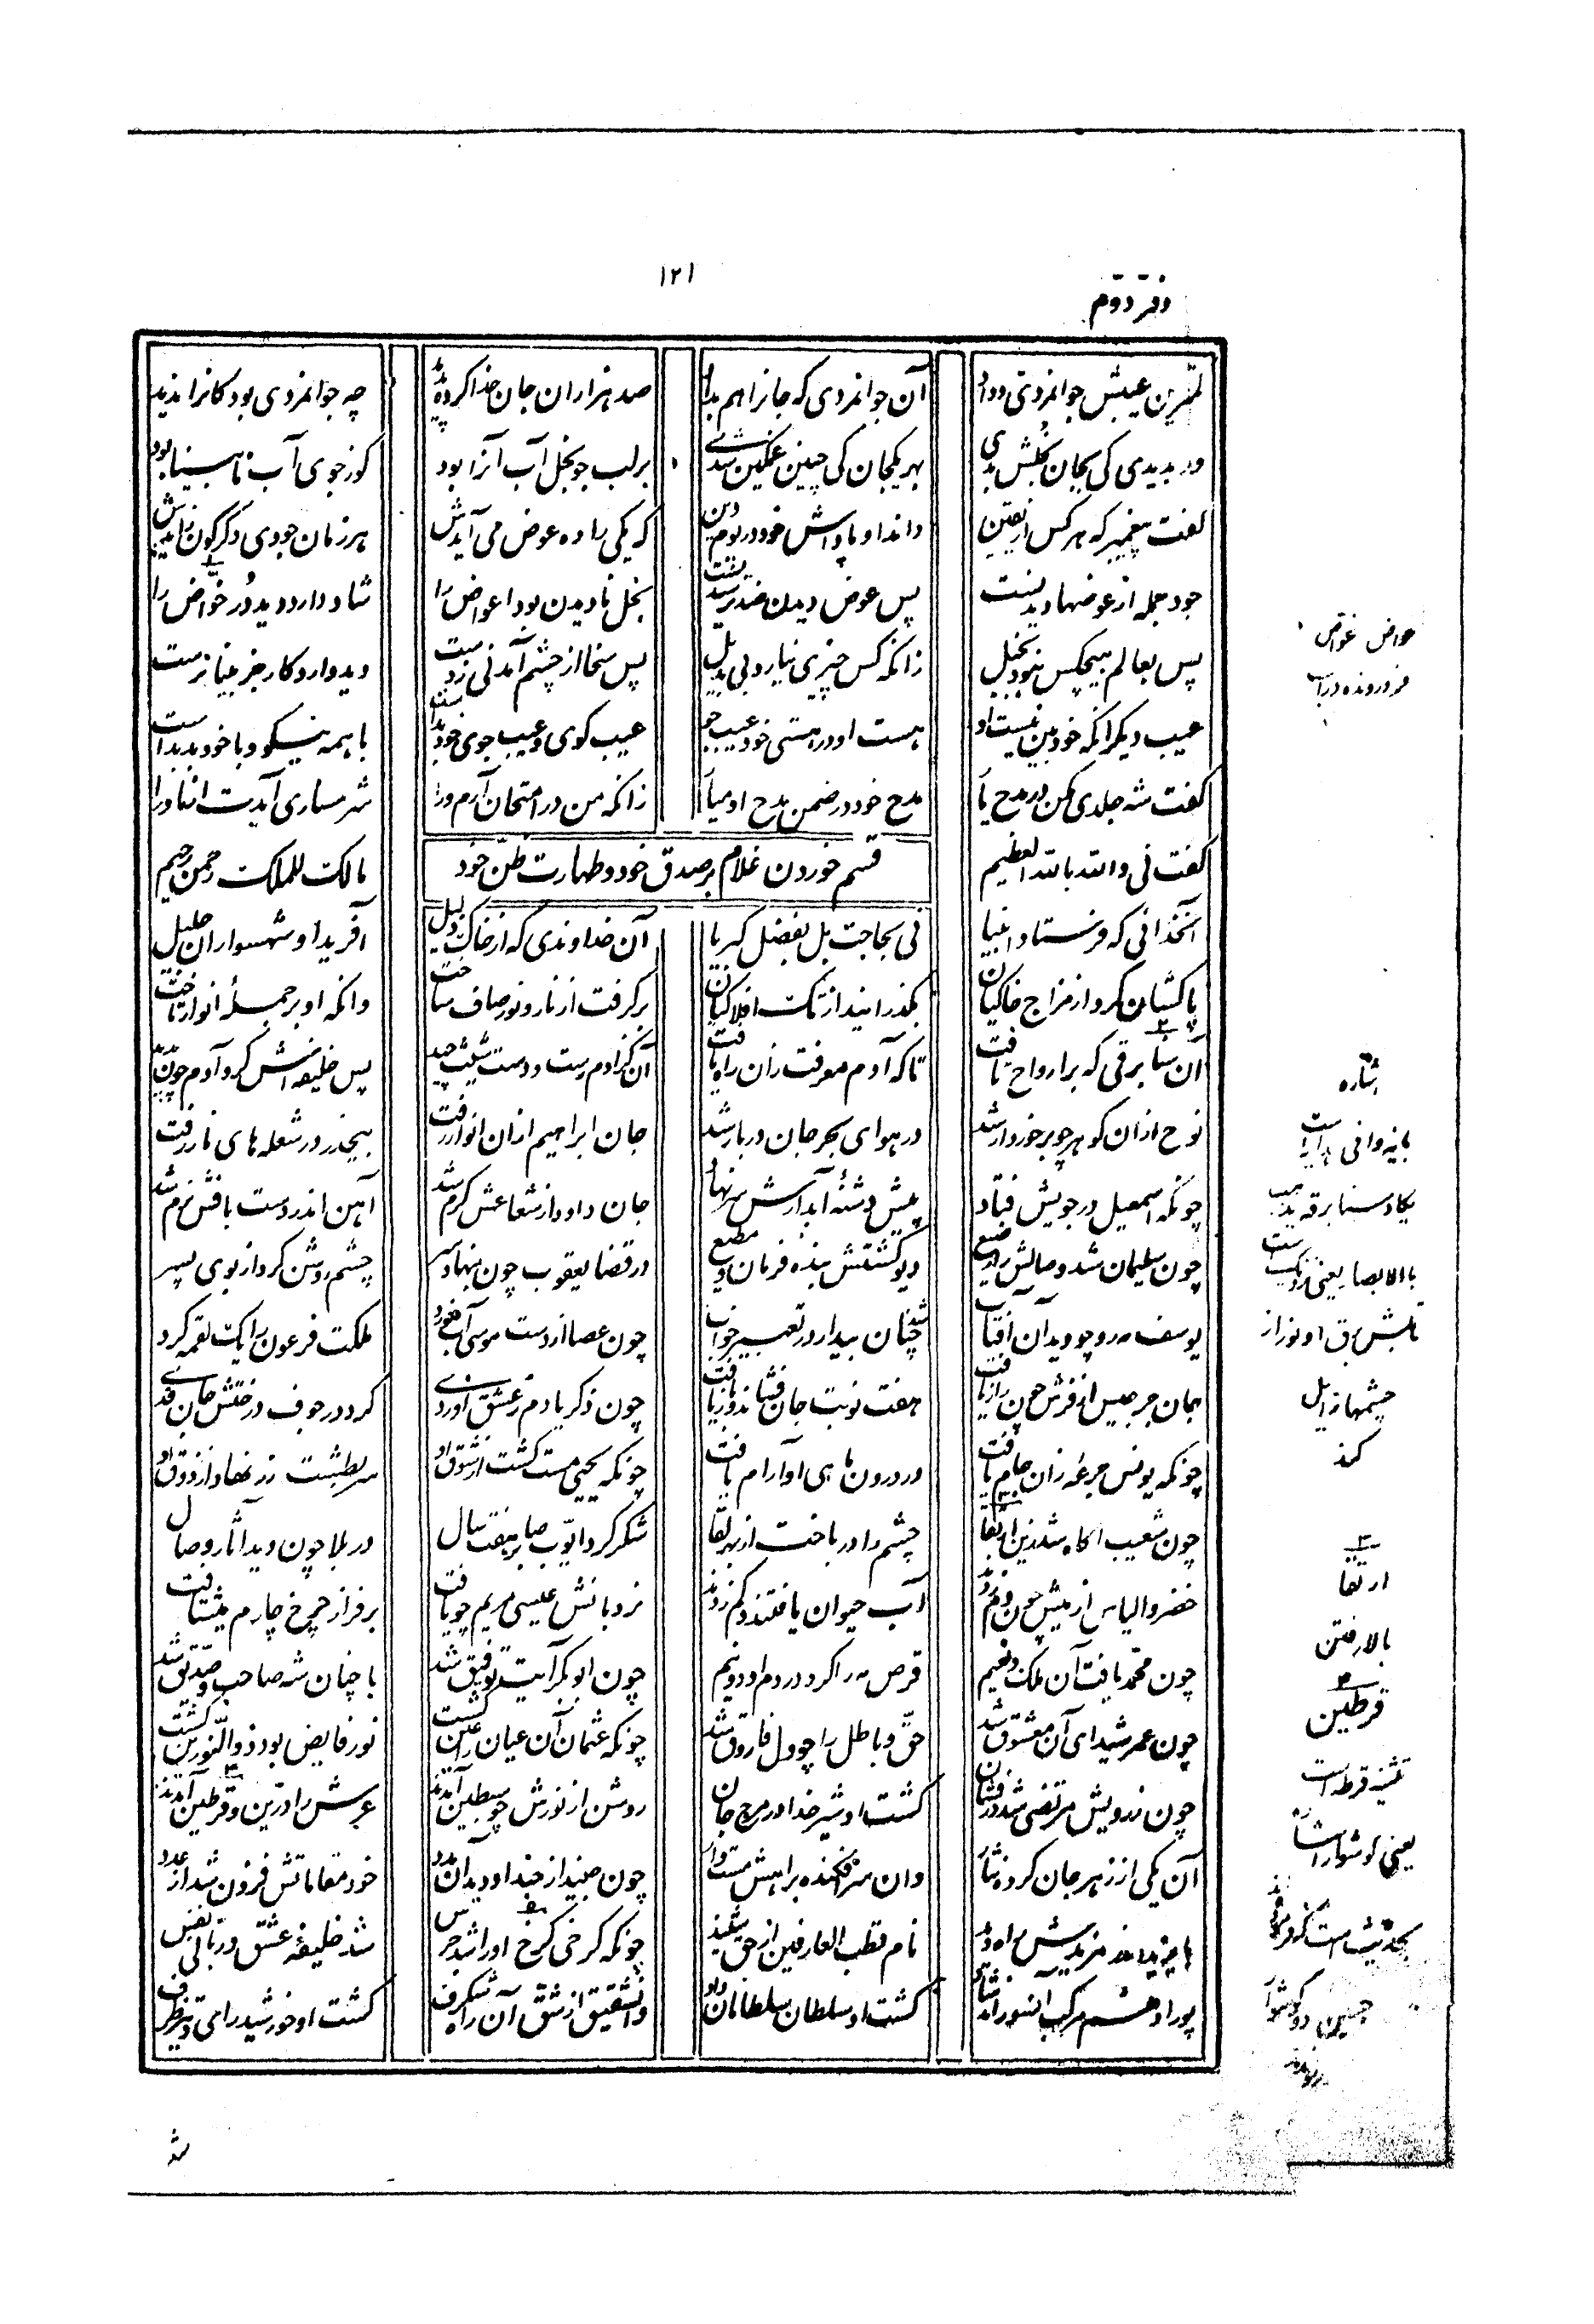 ۱۲۱
دفتر دوم
کمترین عیبش جوانمردی و داد آن جوانمردی که جانرا هم بداد صد هزاران جان خدا کرده پدید چه جوانمردی بود کانرا ندید
ور بدیدی کی بجان بخلش بدی بهر یکجان کی چنین غمگین شدی بر لب جو بخل آب آنرا بود کو ز جوی آب نابینا بود
گفت پیغمبر که هر کس از یقین داند او پاداش خود در یوم دین که یکی را ده عوض می آیدش هر زمان جودی دگرگون زایدش
جود جمله از عوضها دیدنست پس عوض دیدن ضد ترسیدنست بخل نادیدن بود اعواض را شاد دارد دید در خواض را
پس بعالم هیچکس نبود بخیل زانکه کس چیزی نبازد بی بدیل پس سخا از چشم آمد نی ز دست دید دارد کار جز بینا نرست
عیب دیگر آنکه خودبین نیست او هست او در هستی خود عیب جو عیب گوی و عیب جوی خود بدست با همه نیکو و با خود بد بدست
گفت شه جلدی مکن در مدح یار مدح خود در ضمن مدح او میار زانکه من در امتحان آرم ورا شرمساری آیدت اندر ورا
گفت نی والله بالله العظیم
قسم خوردن غلام بر صدق خود و طهارت ظن خود
مالک الملک رحمن رحیم
آنخدائی که فرستاد انبیا نی بحاجت بل بفضل کبریا آن خداوندی که از خاک ذلیل آفرید او شهسواران جلیل
پاکشان کرد از مزاج خاکیان بگذرانید از تک افلاکیان برگرفت از نار و نور صاف ساخت وانگه او بر جملهٔ انوار تاخت
آن سنا برقی که بر ارواح تافت تا که آدم معرفت زان راه یافت آن کز آدم رست و دست شیث چید پس خلیفه اش کرد آدم چون بدید
نوح ازان گوهر چو برخوردار شد در هوای بحر جان دربار شد جان ابراهیم ازان انوار رفت بیحذر در شعله های نار رفت
چونکه اسمعیل در جویش فتاد پیش دشنهٔ آبدارش سر نهاد جان داود از شعاعش گرم شد آهن اندر دست بافش نرم شد
چون سلیمان شد وصالش را رضیع دیو گشتش بنده فرمان و مطیع در قضا یعقوب چون بنهاد سر چشم روشن کرد از بوی پسر
یوسف مه رو چو دید آن آفتاب شد چنان بیدار در تعبیر خواب چون عصا از دست موسی آب خورد ملکت فرعون را یک لقمه کرد
جان جرجیس از فرش چون راز یافت هفت نوبت جان فشاند و باز یافت چون زکریا دم ز عشق آوردی کرد در جوف درختش جان فدی
چونکه یونس جرعه زان جام یافت در درون ماهی او آرام یافت چونکه یحیی مست گشت از شوق او سر بطشت زر نهاد از ذوق او
چون شعیب آگاه شد زین ارتقا چشم را در باخت از بهر لقا شکر کرد ایوب صابر هفت سال در بلا چون دید آثار وصال
خضر و الیاس از میش چون دم زدند آب حیوان یافتند و کم زدند نردبانش عیسی مریم چو یافت بر فراز چرخ چارم میشتافت
چون محمد یافت آن ملک و نعیم قرص مه را کرد در دم او دو نیم چون ابوبکر آیت توفیق شد با چنان شه صاحب و صدیق شد
چون عمر شیدای آن معشوق شد حق و باطل را چو دل فاروق شد چونکه عثمان آن عیان را عین گشت نور فایض بود ذوالنورین گشت
چون ز رویش مرتضی شد درفشان گشت او شیر خدا در مرج جان روشن از نورش چو سبطین آمدند عرش را درین و قرطین آمدند
آن یکی از زهر جان کرده نثار وان سر افکنده براهش مست وار چون جنید از جند او دید آن مدد خود مقاماتش فزون شد از عدد
بایزید اندر مزیدش راه دید نام قطب العارفین از حق شنید چونکه کرخی کرخ او را شد حرس شد خلیفهٔ عشق و ربانی نفس
پور ادهم مرکب آنسو راند شاد گشت او سلطان سلطانان داد وان شقیق از شق آن راه شگرف گشت او خورشید رای و تیز طرف
خواض غواص
فرو رونده در آب
اشاره
بآیه وافی هدایت است
یکاد سنا برقه یذهب
بالابصار یعنی نزدیک است
تابش برق او نور از
چشمها زایل
کند
۳
ارتقا
بالا رفتن
۴
قرطین
تثنیه قرطه است
یعنی گوشواره